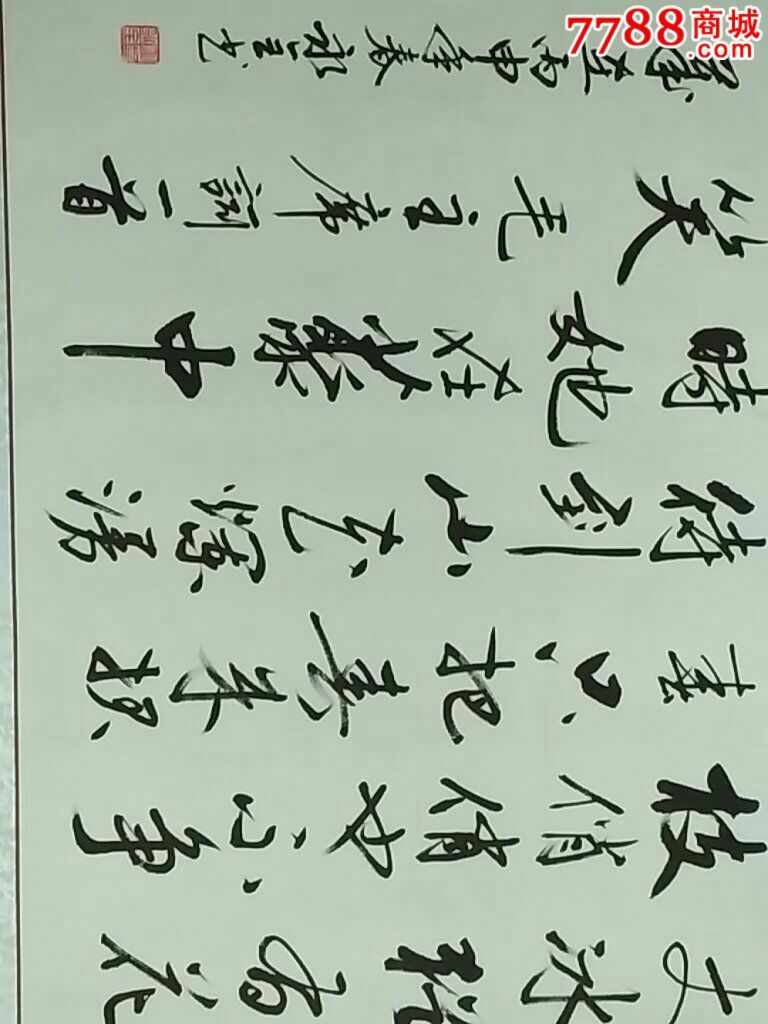 丈冰犹有花
枝俏俏也不争
春只把春来报
待到山花烂漫
时她在丛中
笑 毛主席词一首
丙申年春 书
7788商城
.com